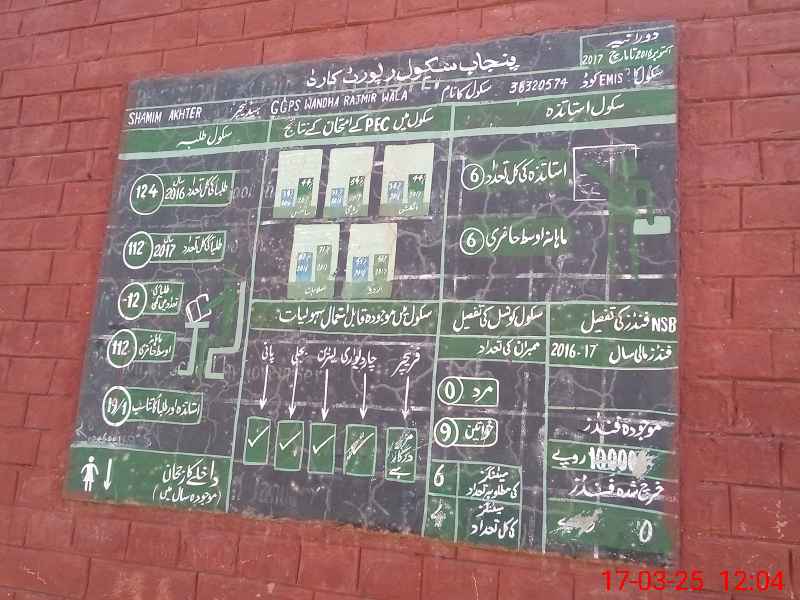 دورانیہ
اکتوبر 2016 تا مارچ 2017
پنجاب سکول رپورٹ کارڈ
سکول EMIS کوڈ 38320574 سکول کا نام GGPS WANDHA RAJMIR WALA ہیڈ ٹیچر SHAMIM AKHTER
سکول اساتذہ
اساتذہ کی کل تعداد 6
ماہانہ اوسط حاضری 6
سکول میں PEC کے امتحان کے نتائج
انگلش
ریاضی
سائنس
اردو
اسلامیات
سکول طلبہ
طلبا کی کل تعداد سال 2016 124
طلبا کی کل تعداد سال 2017 112
طلبا کی تعداد میں کمی -12
ماہانہ اوسط حاضری 112
اساتذہ اور طلبا کا تناسب 19/1
داخلے کا رجحان
(موجودہ سال میں)
سکول میں موجودہ قابل استعمال سہولیات
فرنیچر
چار دیواری
لیٹرین
بجلی
پانی
مزید درکار ہے
سکول کونسل کی تفصیل
ممبران کی تعداد
مرد 0
خواتین 9
میٹنگز کی مطلوبہ تعداد 6
میٹنگز کی کل تعداد
NSB فنڈز کی تفصیل
فنڈز مالی سال 2016-17
موجودہ فنڈز
روپے
خرچ شدہ فنڈز
0 روپے
17-03-25 12:04